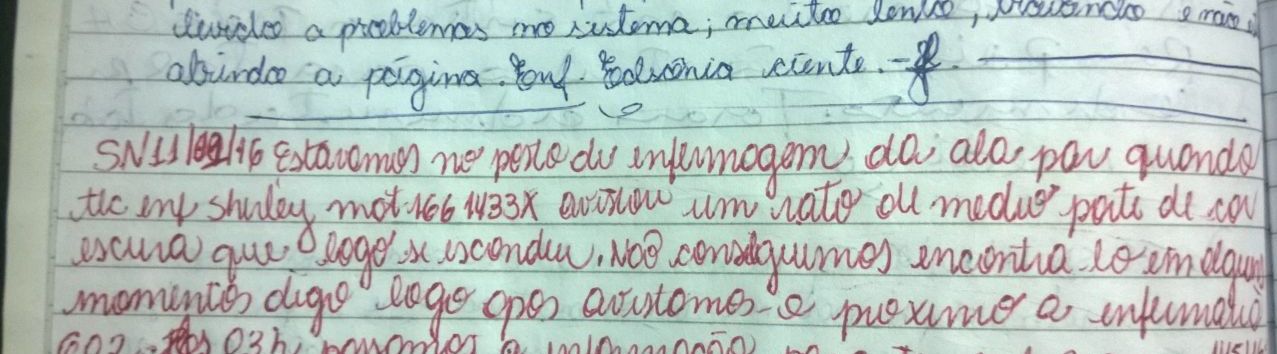 devido a problemas no sistema; muito lento, travando e não
abrindo a página. Enf. Edscônia ciente.
SN 11/09/16 Estavamos no posto de enfermagem da ala par quando
tec enf Shirley mat. 166 1433X avistou um rato de medio porte de cor
escura que logo se escondeu. Não conseguimos encontra-lo em algum
momentos digo logo apos avistamos-o proximo a enfermaria
602. 03h, passamos a informação